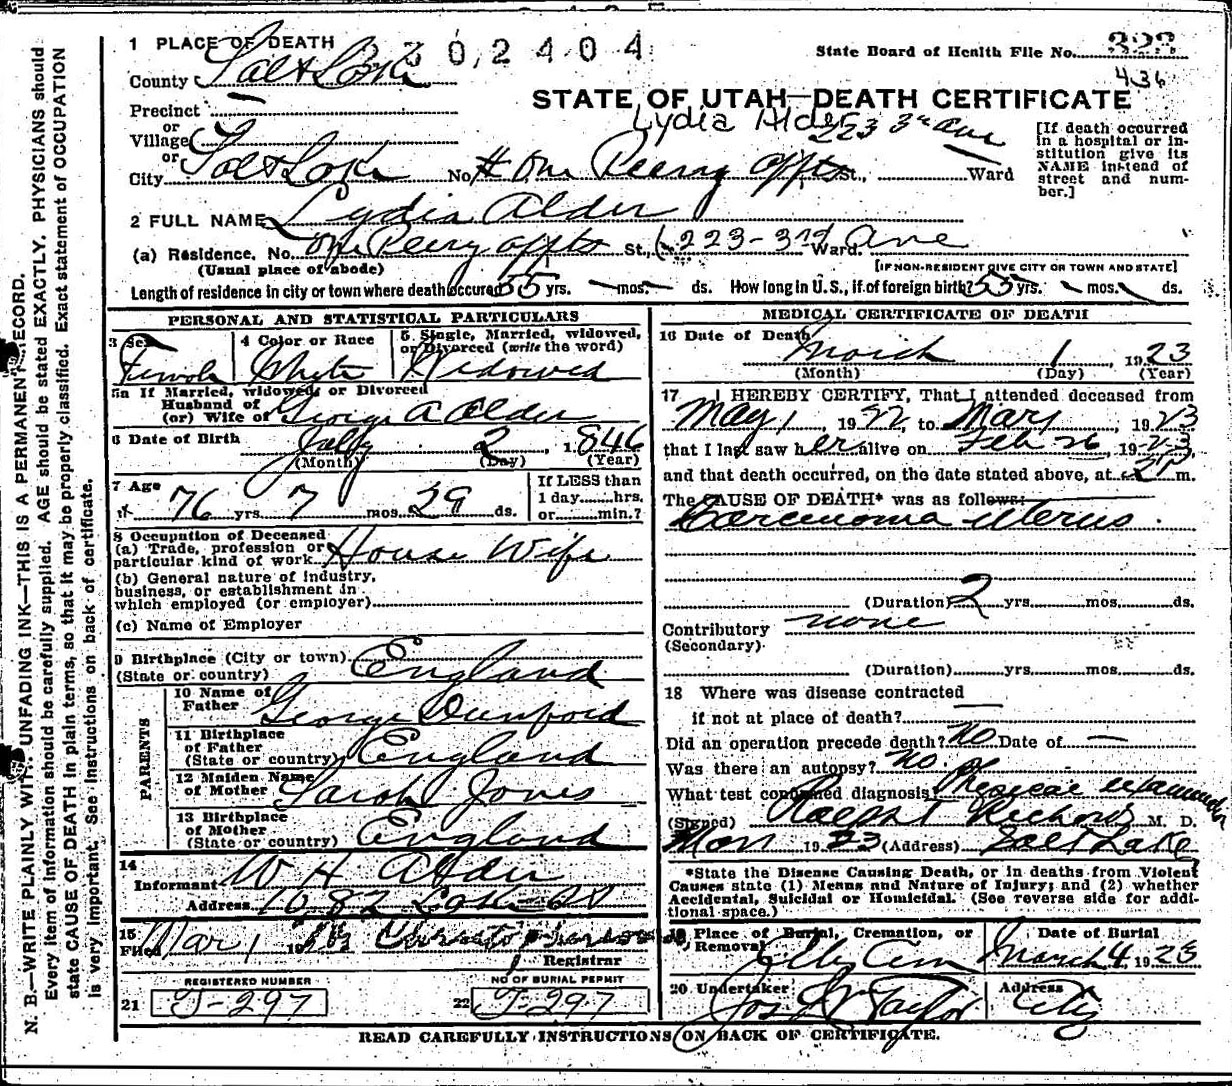 1 PLACE OF DEATH 2302404 State Board of Health File No. 322
County Salt Lake 436
Precinct —
STATE OF UTAH—DEATH CERTIFICATE
or
Village
Lydia Alder 223 3rd ave
or
City Salt Lake No. # One Peery appts St., Ward
[If death occurred in a hospital or institution give its NAME instead of street and number.]
2 FULL NAME Lydia Alder
(a) Residence. No. One Peery appts St., (223-3rd Ward. Ave
(Usual place of abode) [IF NON-RESIDENT GIVE CITY OR TOWN AND STATE]
Length of residence in city or town where death occured 55 yrs. — mos. — ds. How long in U. S., if of foreign birth? 55 yrs. — mos. — ds.
PERSONAL AND STATISTICAL PARTICULARS
3 Sex Female
4 Color or Race White
5 Single, Married, widowed, or Divorced (write the word) Widowed
5a If Married, widowed, or Divorced
Husband of
(or) Wife of George A Alder
6 Date of Birth July 2, 1846
(Month) (Day) (Year)
7 Age 76 yrs. 7 mos. 29 ds.
If LESS than
1 day......hrs.
or......min.?
8 Occupation of Deceased
(a) Trade, profession or
particular kind of work House Wife
(b) General nature of industry,
business, or establishment in
which employed (or employer)
(c) Name of Employer
9 Birthplace (City or town)
(State or country) England
PARENTS
10 Name of
Father George Dunford
11 Birthplace
of Father
(State or country) England
12 Maiden Name
of Mother Sarah Jones
13 Birthplace
of Mother
(State or country) England
14
Informant W H Alder
Address 1082 Lake St
15
Filed Mar 1 1923
Registrar
REGISTERED NUMBER
21 J-297
NO OF BURIAL PERMIT
22 J-297
MEDICAL CERTIFICATE OF DEATH
16 Date of Death March 1 1923
(Month) (Day) (Year)
17 I HEREBY CERTIFY, That I attended deceased from
May 1, 1922, to Mar 1, 1923
that I last saw her alive on Feb 26, 1923,
and that death occurred, on the date stated above, at 2 P m.
The CAUSE OF DEATH* was as follows:
Carcinoma uterus.
(Duration) 2 yrs. mos. ds.
Contributory none
(Secondary)
(Duration) yrs. mos. ds.
18 Where was disease contracted —
if not at place of death?
Did an operation precede death? No Date of —
Was there an autopsy? No.
What test confirmed diagnosis? Physical examination
(Signed) Ralph T Richards M. D.
Mar 1 1923 (Address) Salt Lake
*State the Disease Causing Death, or in deaths from Violent
Causes state (1) Means and Nature of Injury; and (2) whether
Accidental, Suicidal or Homicidal. (See reverse side for addi-
tional space.)
19 Place of Burial, Cremation, or
Removal City Cem
Date of Burial
March 4, 1923
20 Undertaker Jos Wm Taylor
Address City
READ CAREFULLY INSTRUCTIONS ON BACK OF CERTIFICATE.
N. B.—WRITE PLAINLY WITH UNFADING INK—THIS IS A PERMANENT RECORD.
Every item of information should be carefully supplied. AGE should be stated EXACTLY. PHYSICIANS should
state CAUSE OF DEATH in plain terms, so that it may be properly classified. Exact statement of OCCUPATION
is very important. See instructions on back of certificate.